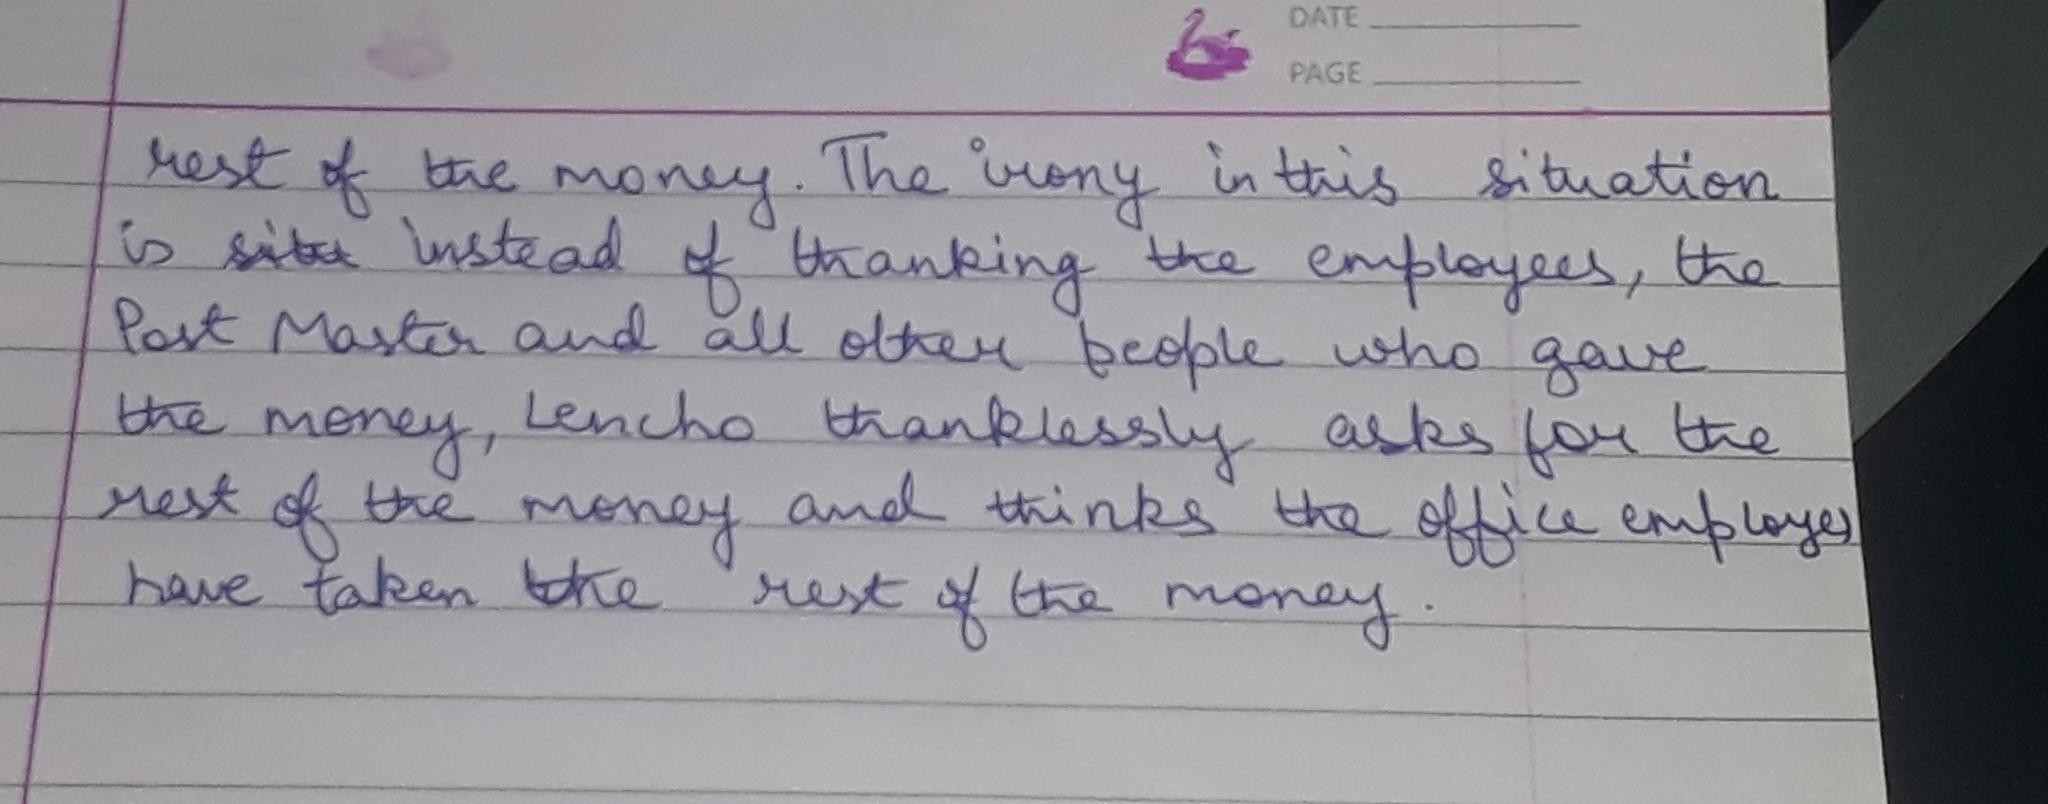 DATE
PAGE
rest of the money. The irony in this situation
is situ instead of thanking the employees, the
Post Master and all other people who gave
the money, Lencho thanklessly asks for the
rest of the money and thinks the office employes
have taken the rest of the money.